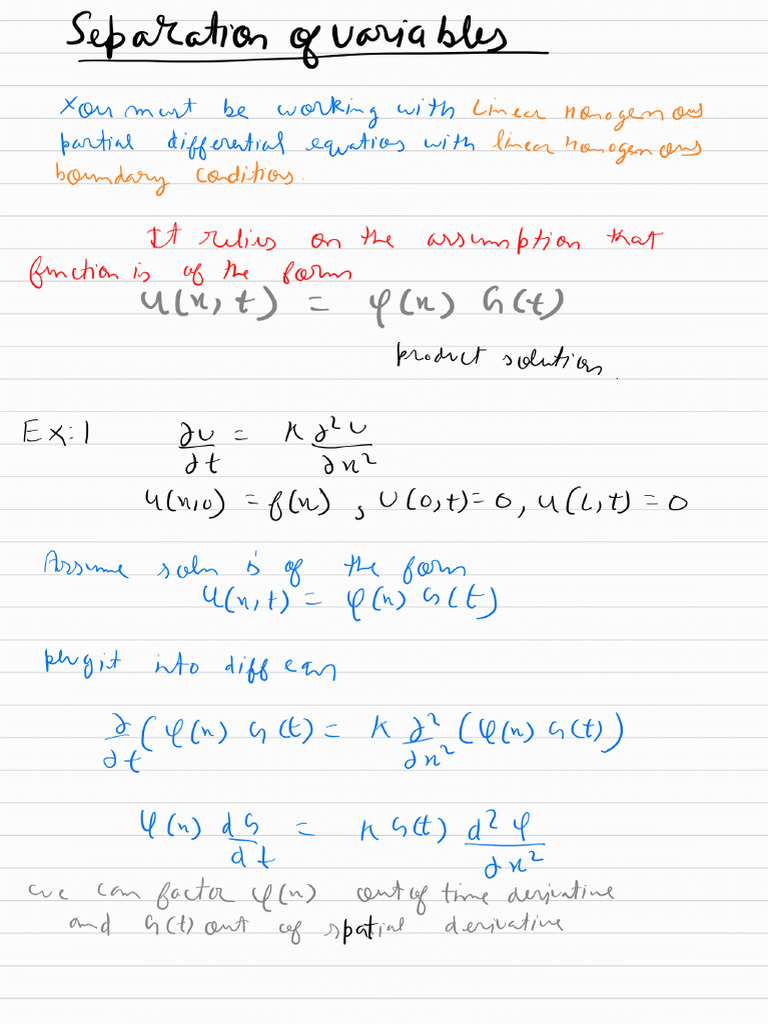 Separation of variables
You must be working with linear honogenous
partial differential equations with linear honogenous
boundary conditions.
It relies on the assumption that
function is of the form
u(x, t) = φ(x) G(t)
product solution.
Ex:1 ∂u/∂t = k ∂²u/∂x²
u(x,0) = f(x), u(0,t)=0, u(L,t)=0
Assume soln is of the form
u(x,t) = φ(x) G(t)
plug it into diff eqn
∂/∂t (φ(x) G(t) = k ∂²/∂x² (φ(x) G(t))
φ(x) dG/dt = k G(t) d²φ/∂x²
we can factor φ(x) out of time derivative
and G(t) out of spatial derivative